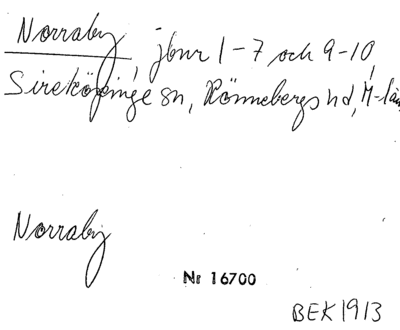 Norraby, jbnr 1-7 och 9-10,
Sireköpinge sn, Rönnebergs hd, M-län
Norraby
Nr 16700
BEK 1913